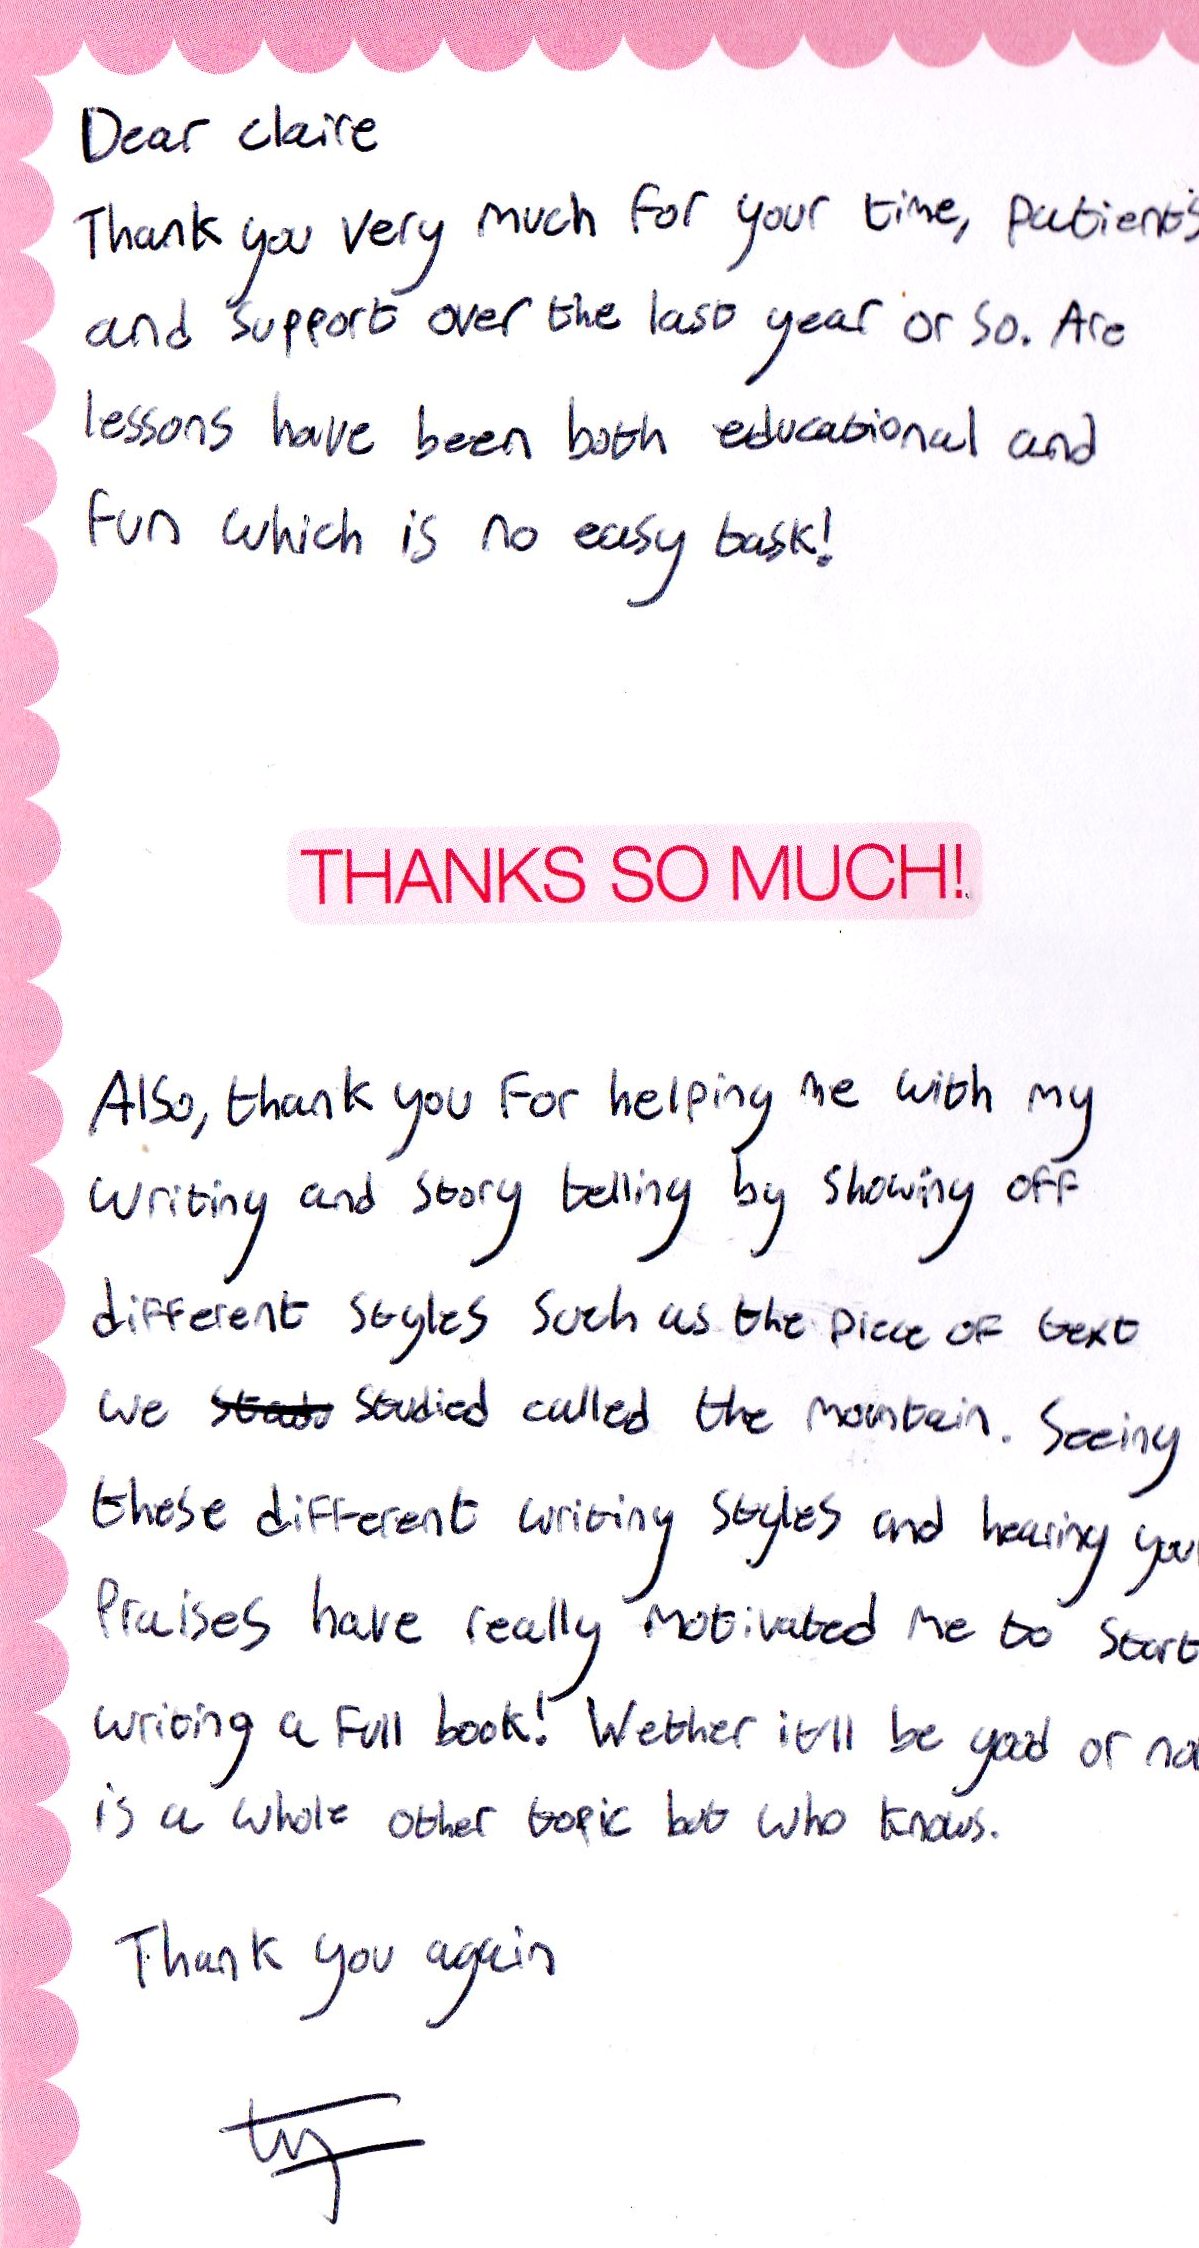 Dear Claire
Thank you very much for your time, patients
and support over the last year or so. Are
lessons have been both educational and
fun which is no easy task!
THANKS SO MUCH!
Also, thank you for helping me with my
writing and story telling by showing off
different styles such as the piece of text
we studied called the mountain. Seeing
these different writing styles and hearing your
praises have really motivated me to start
writing a full book! Wether it'll be good or not
is a whole other topic but who knows.
Thank you again